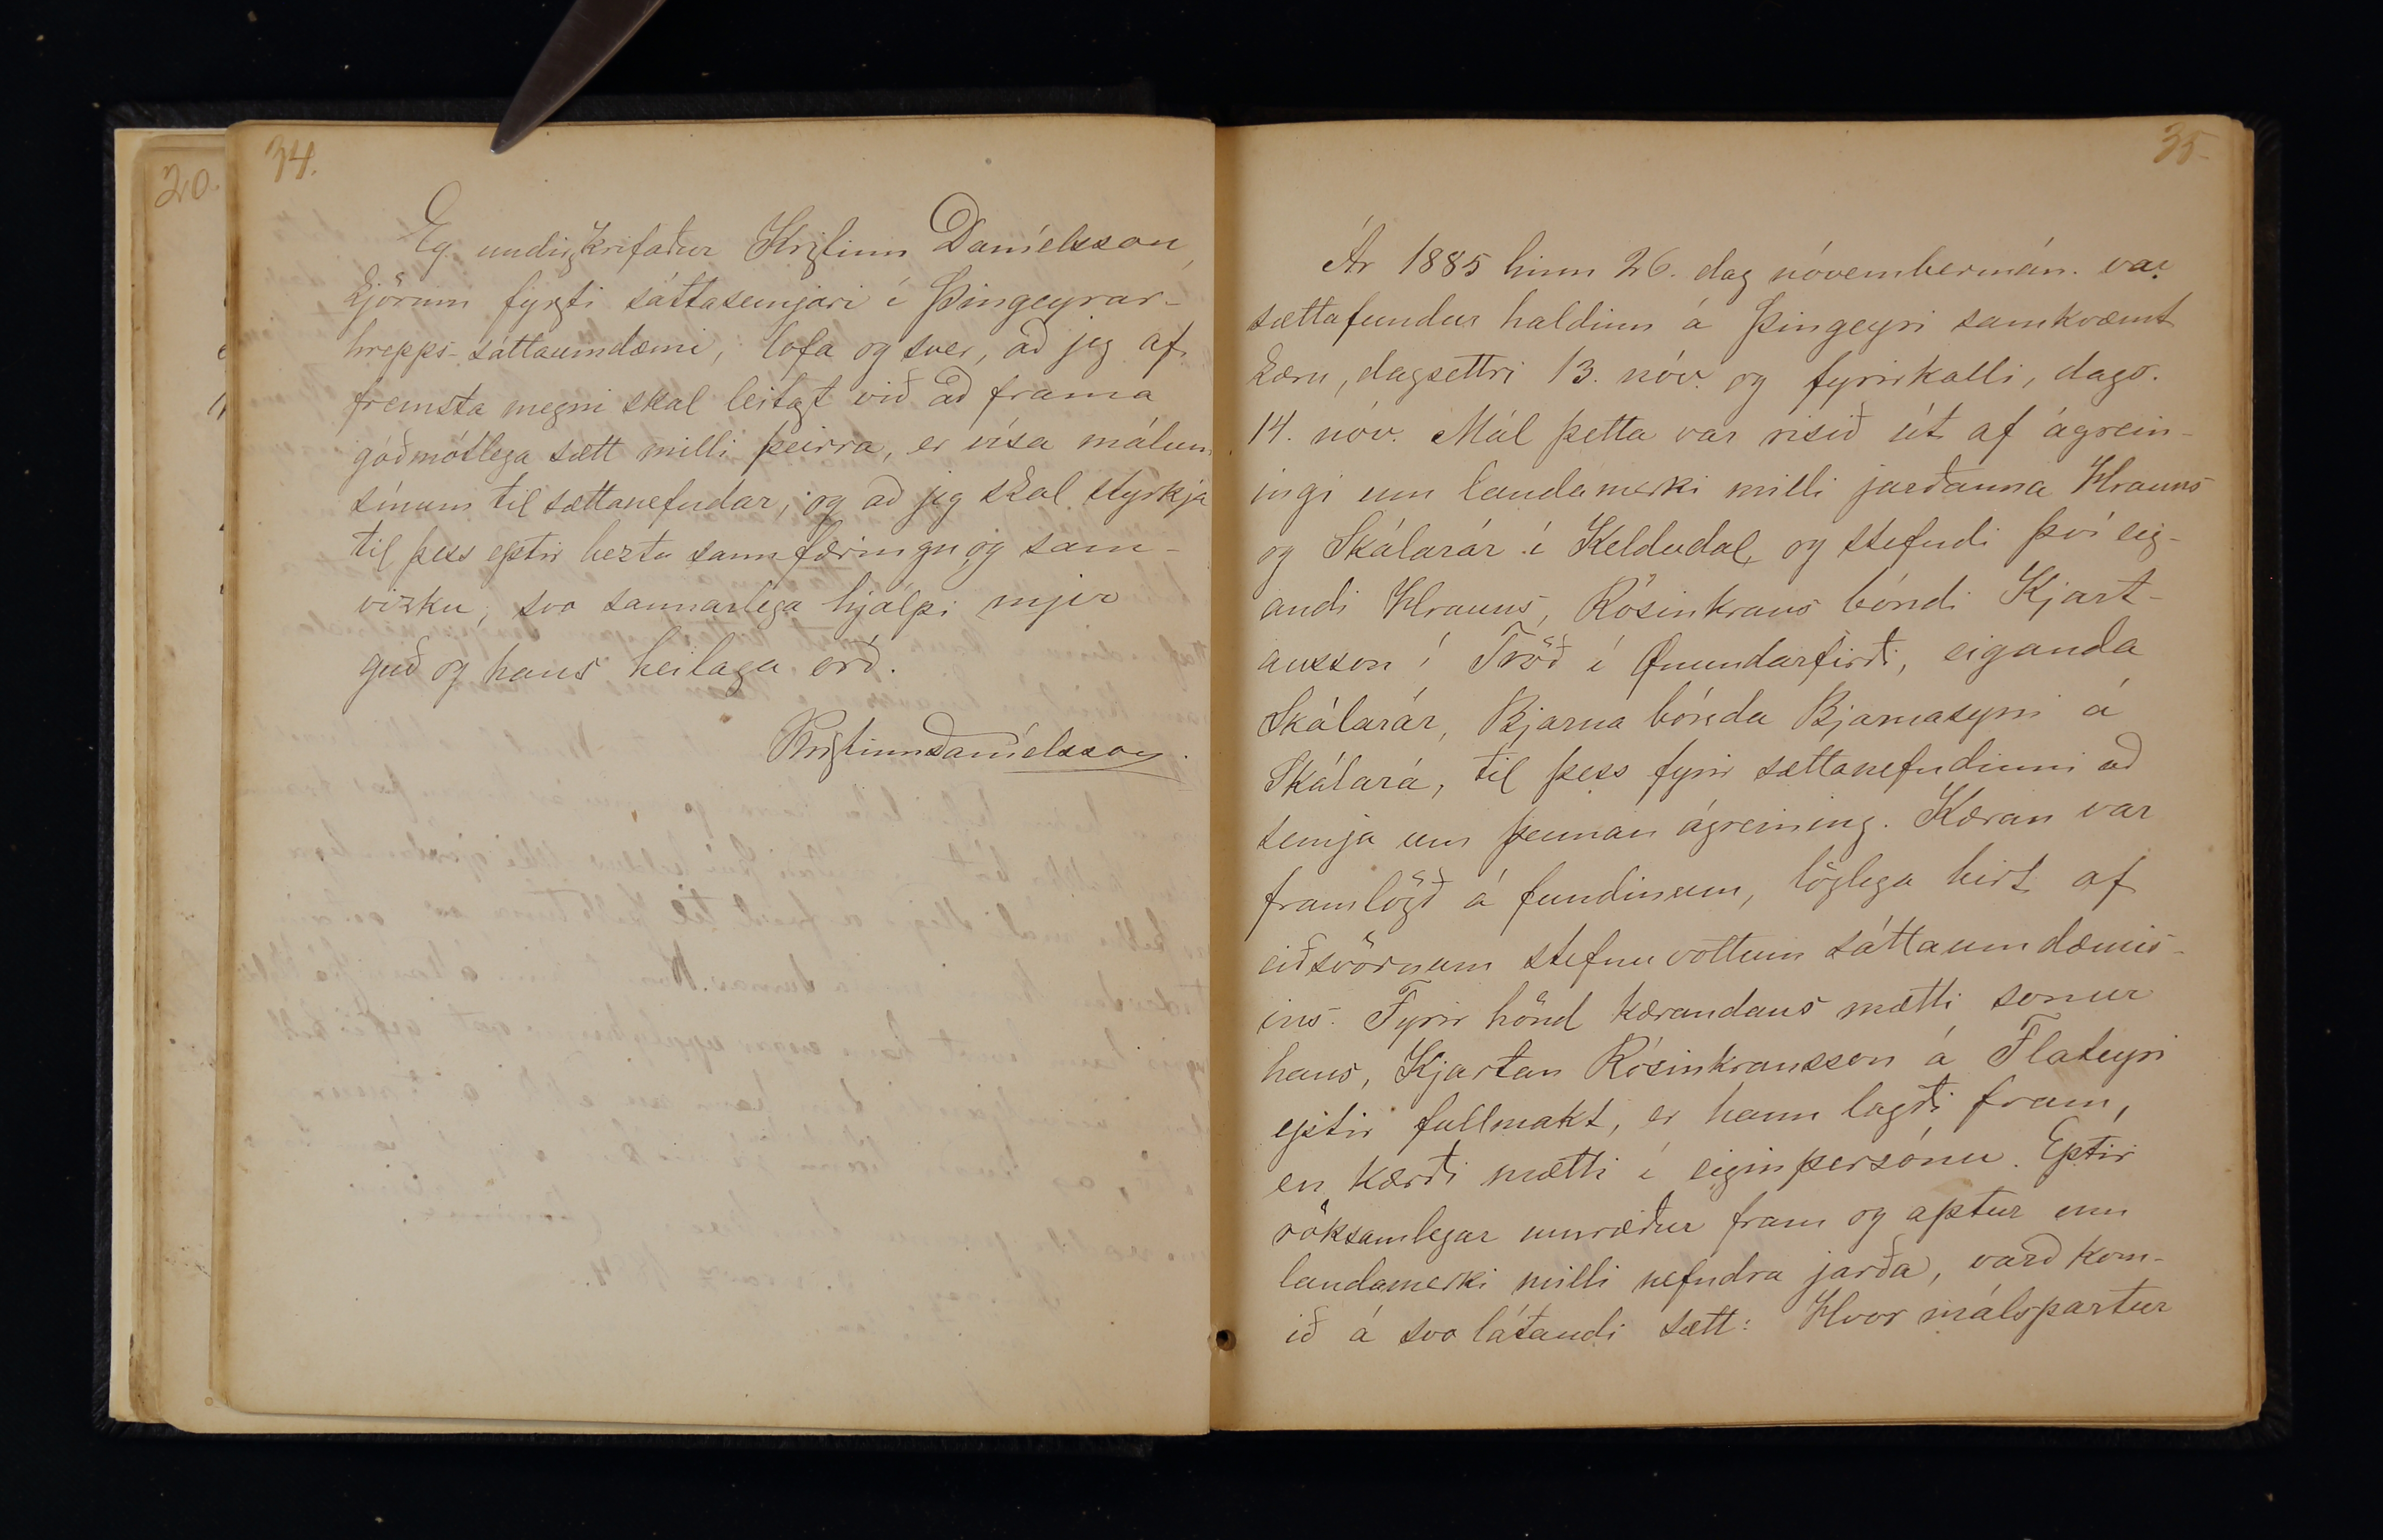 20.
34.
Eg undirskrifaður Kristinn Daníelsson,
kjörinn fyrsti sáttasemjari í Þingeyrar-
hrepps-sáttaumdæmi, lofa og sver, að jeg af
fremsta megni skal leitast við að frama
góðmótlega sætt milli þeirra, er vísa málum
sínum til sættanefndar, og að jeg skal styrkja
til þess eptir beztu sannfæringu og sam-
vizku, svo sannarlega hjálpi mjer
guð og hans heilaga orð.
Kristinn Daníelsson.
35.
Ár 1885 hinn 26. dag nóvembermán. var
sættafundur haldinn á Þingeyri samkvæmt
kæru, dagsettri 13. nóv. og fyrirkalli, dags.
14. nóv. Mál þetta var risið út af ágrein-
ingi um landamerki milli jarðanna Hrauns
og Skálarár í Keldudal, og stefndi því eig-
andi Hrauns, Rósinkrans bóndi Kjart-
ansson í Tröð í Önundarfirði, eiganda
Skálarár, Bjarna bónda Bjarnasyni á
Skálará, til þess fyrir sættanefndinni að
semja um þennan ágreining. Kæran var
framlögð á fundinum, löglega birt af
eiðsvörnum stefnuvottum sáttaumdæmis-
ins. Fyrir hönd kærandans mætti sonur
hans, Kjartan Rósinkransson á Flateyri
eptir fullmakt, er hann lagði fram,
en kærði mætti í eigin persónu. Eptir
röksamlegar umræður fram og aptur um
landamerki milli nefndra jarða, varð kom-
ið á svo látandi sætt: Hvor málspartur